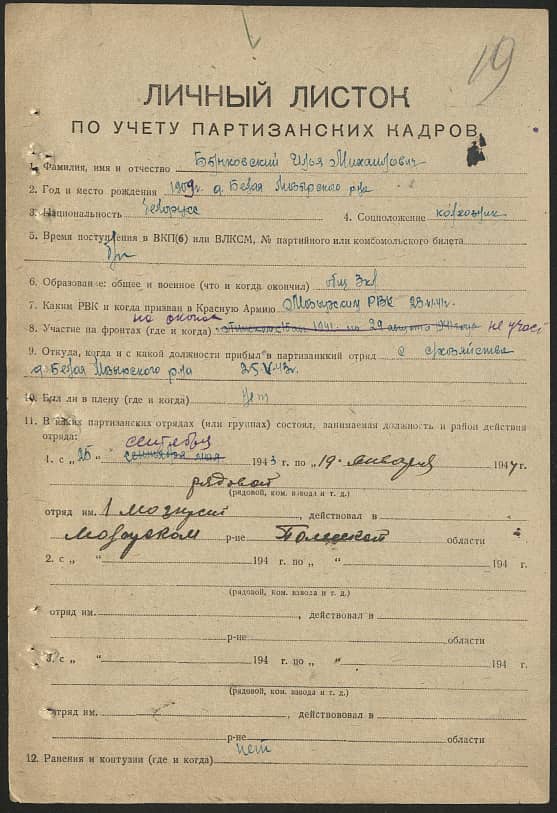 19
ЛИЧНЫЙ ЛИСТОК
ПО УЧЕТУ ПАРТИЗАНСКИХ КАДРОВ
1. Фамилия, имя и отчество Бунковский Илья Михайлович
2. Год и место рождения 1909г. д. Белая Мозырского р-на
3. Национальность белорусс 4. Соцположение колхозник
5. Время поступления в ВКП(б) или ВЛКСМ, № партийного или комсомольского билета
б/п
6. Образование: общее и военное (что и когда окончил) общ 3 кл
7. Каким РВК и когда призван в Красную Армию Мозырским РВК 23.VI.41г.
на окопах
8. Участие на фронтах (где и когда) 1941 по 29 августа не учас
9. Откуда, когда и с какой должности прибыл в партизанский отряд с с/хозяйства
д. Белая Мозырского р-на 25.V.43г.
10. Был ли в плену (где и когда) нет
11. В каких партизанских отрядах (или группах) состоял, занимаемая должность и район действия
отряда: сентября
1. с „25 мая 1943 г. по „19" января 1944 г.
рядовой
(рядовой, ком. взвода и т. д.)
отряд им. 1 Мозырский, действовал в
Мозырском р-не Полесской области
2. с „ " 194 г. по „ " 194 г.
(рядовой, ком. взвода и т. д.)
отряд им. , действовал в
р-не области
3. с „ " 194 г. по „ " 194 г.
(рядовой, ком. взвода и т. д.)
отряд им. , действовал в
р-не области
12. Ранения и контузии (где и когда) нет